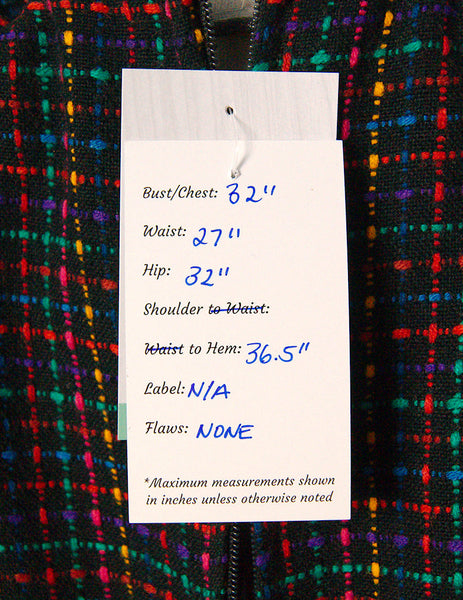 Bust/Chest: 32"
Waist: 27"
Hip: 32"
Shoulder to Waist:
Waist to Hem: 36.5"
Label: N/A
Flaws: NONE
*Maximum measurements shown
in inches unless otherwise noted